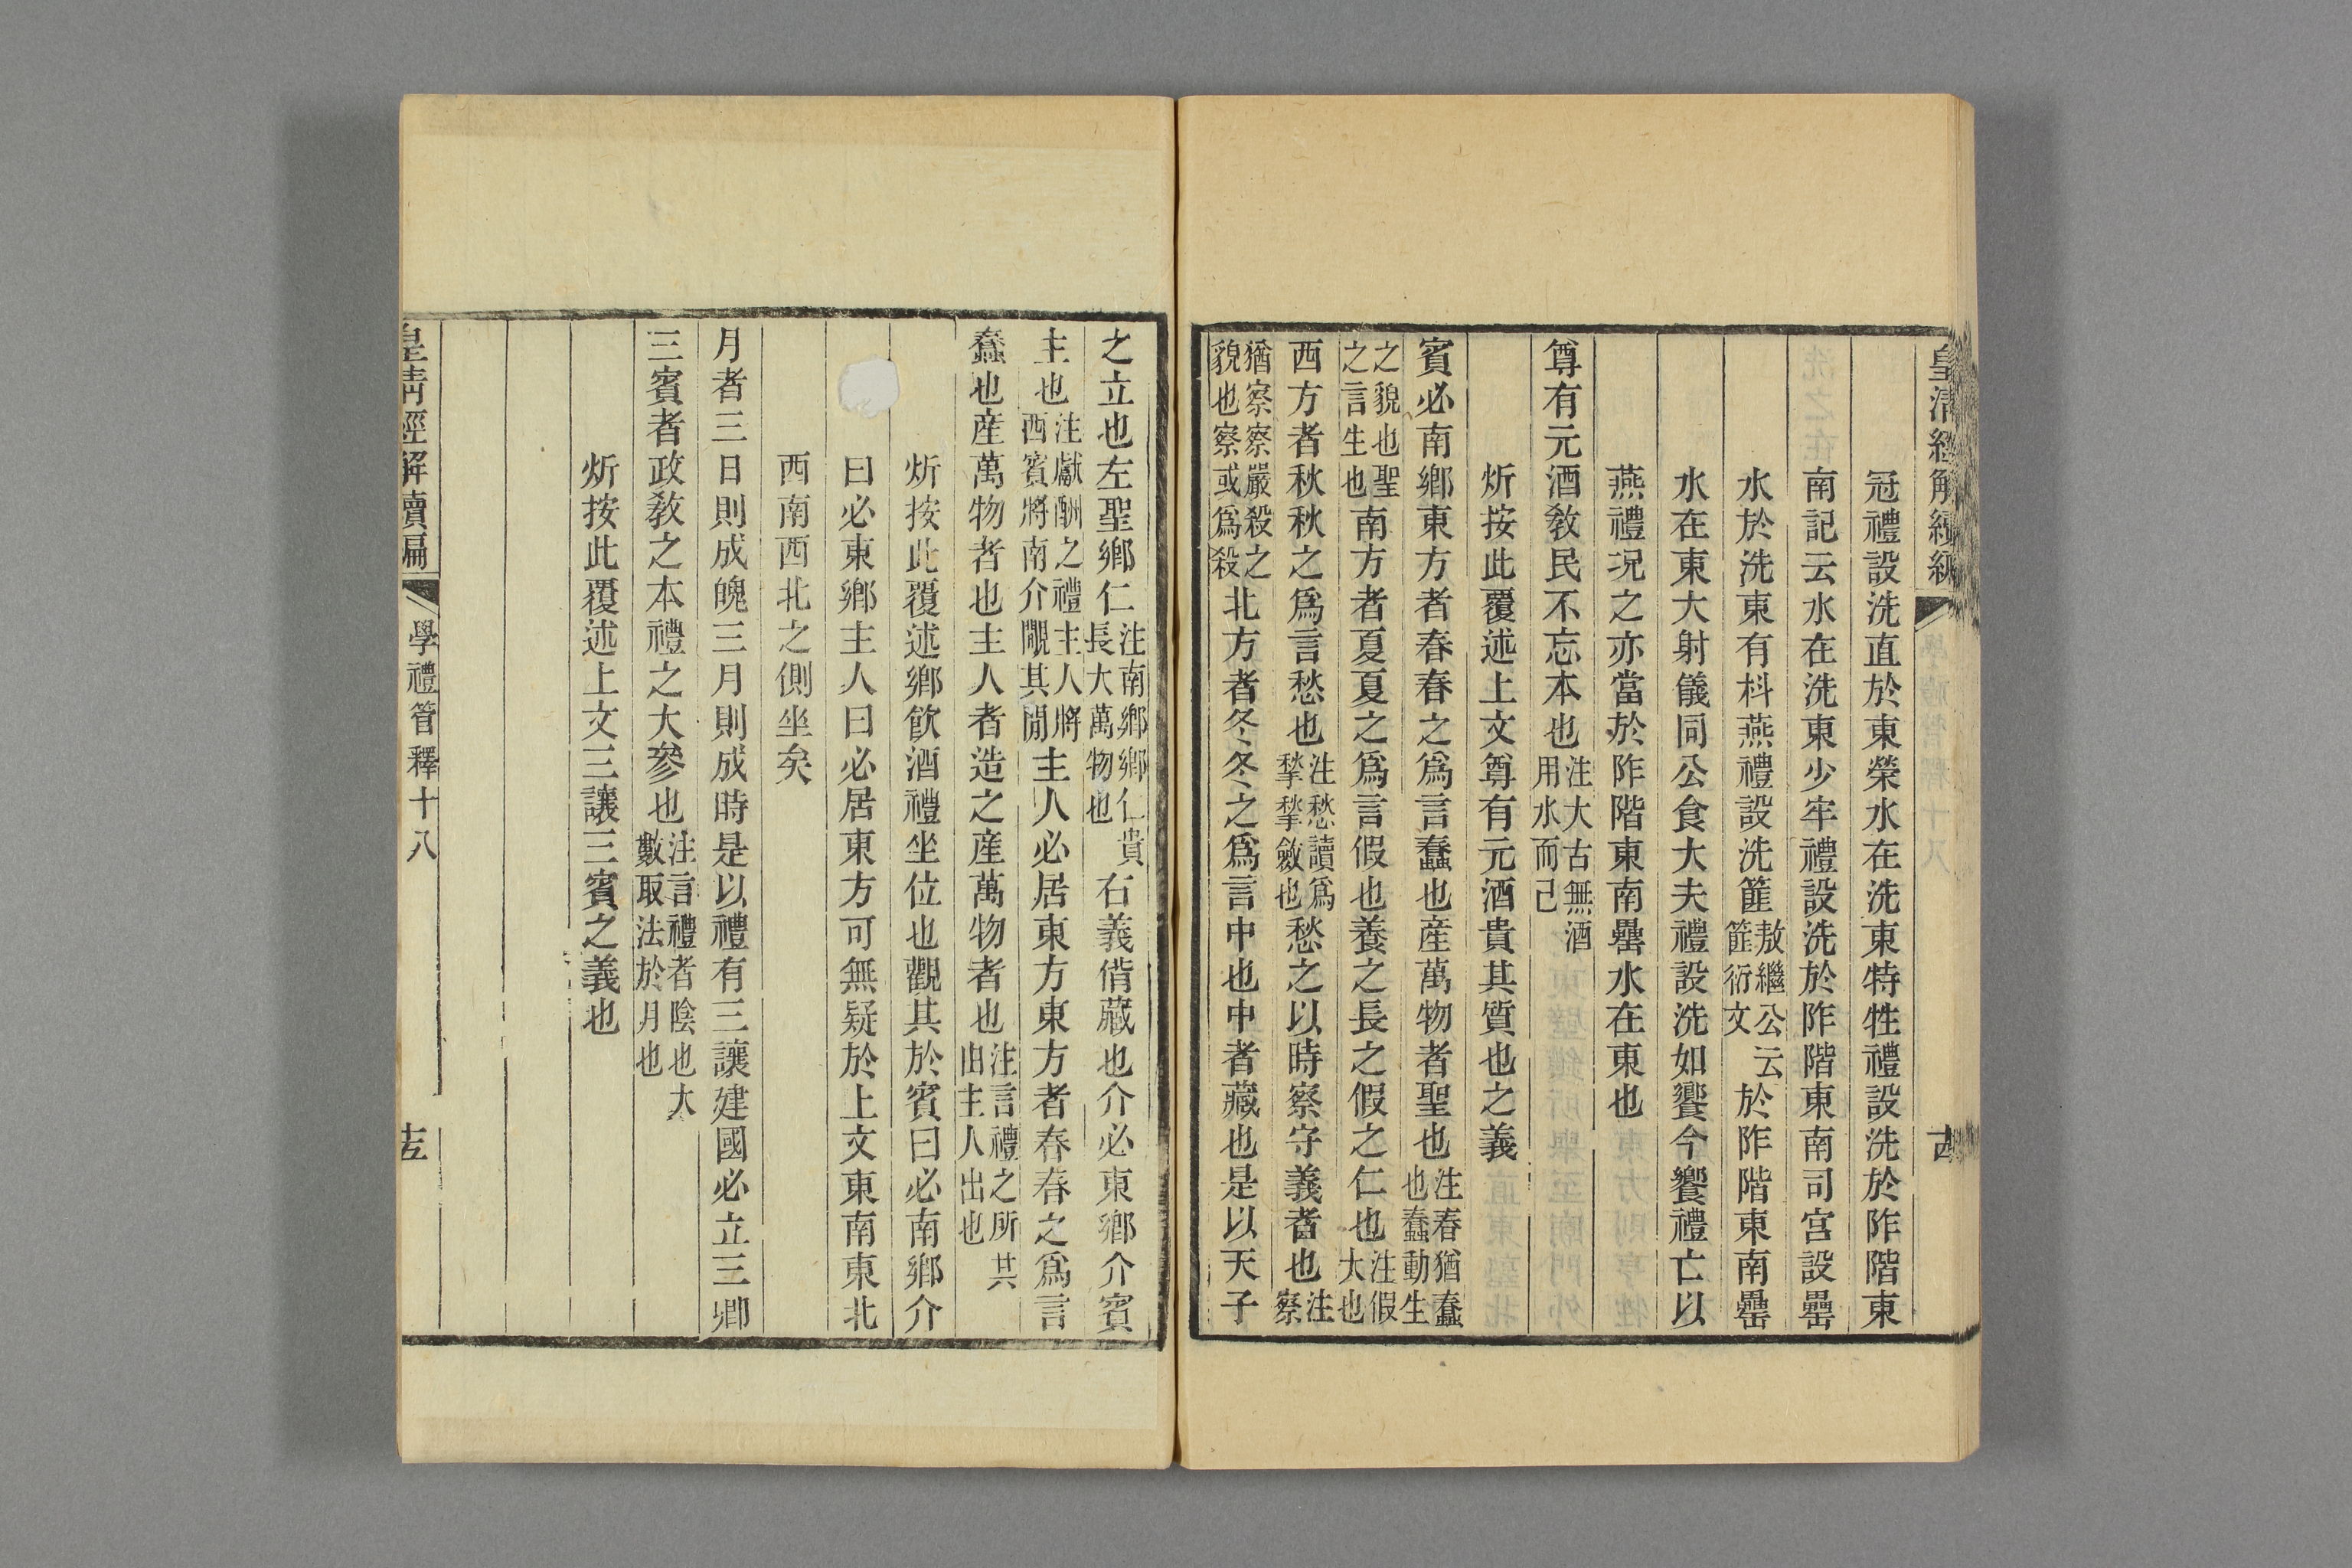 皇清經解續編
冠禮設洗直於東榮水在洗東特牲禮設洗於阼階東
南記云水在洗東少牢禮設洗於阼階東南司宮設罍
水於洗東有枓燕禮設洗篚敖繼公云篚衍文於阼階東南罍
水在東大射儀同公食大夫禮設洗如饗今饗禮亡以
燕禮况之亦當於阼階東南罍水在東也
尊有元酒敎民不忘本也注大古無酒用水而已
炘按此覆述上文尊有元酒貴其質也之義
賓必南鄉東方者春春之爲言蠢也産萬物者聖也注春猶蠢也蠢動生
之貌也聖之言生也南方者夏夏之爲言假也養之長之假之仁也注假大也
西方者秋秋之爲言愁也注愁讀爲揫揫斂也愁之以時察守義者也注察
猶察察嚴殺之貌也察或爲殺北方者冬冬之爲言中也中者藏也是以天子
之立也左聖鄉仁注南鄉鄉仁貴長大萬物也右義偝藏也介必東鄉介賓
主也注獻酬之禮主人將西賓將南介閒其間主人必居東方東方者春春之爲言
蠢也産萬物者也主人者造之産萬物者也注言禮之所共由主人出也
炘按此覆述鄉飮酒禮坐位也觀其於賓曰必南鄉介
曰必東鄉主人曰必居東方可無疑於上文東南東北
西南西北之側坐矣
月者三日則成魄三月則成時是以禮有三讓建國必立三卿
三賓者政敎之本禮之大參也注言禮者陰也大數取法於月也
炘按此覆述上文三讓三賓之義也
皇淸經解續編
學禮管釋十八